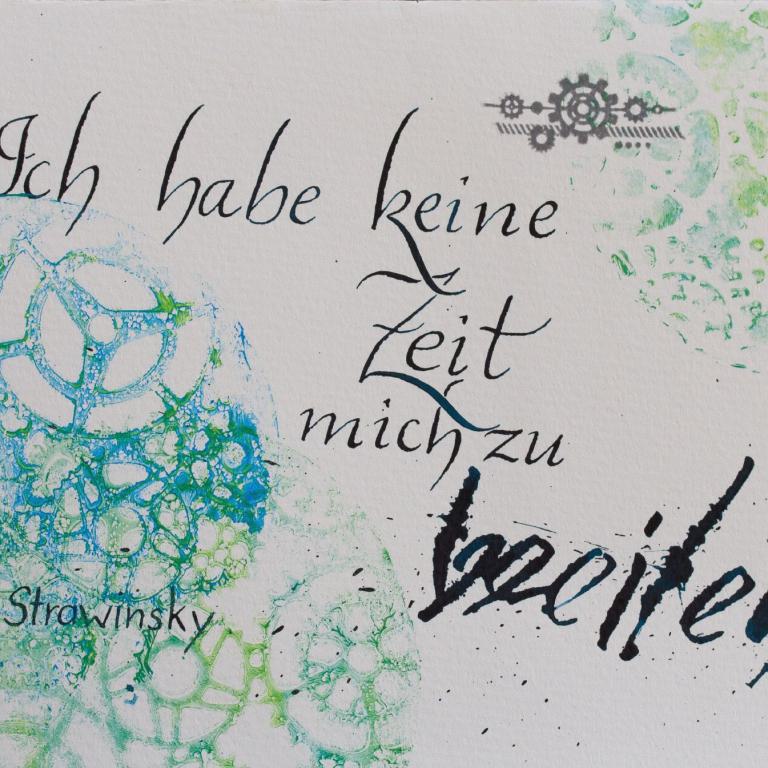 Ich habe keine
Zeit
mich zu
beeilen
Strawinsky